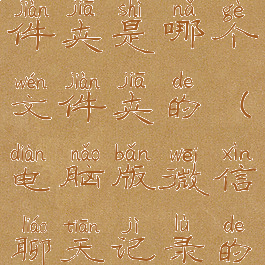 jiàn jiā shì nǎ gè
件夹是哪个
wén jiàn jiā de
文件夹的（
diàn nǎo bǎn wēi xìn
电脑版微信
liáo tiān jì lù de
聊天记录的